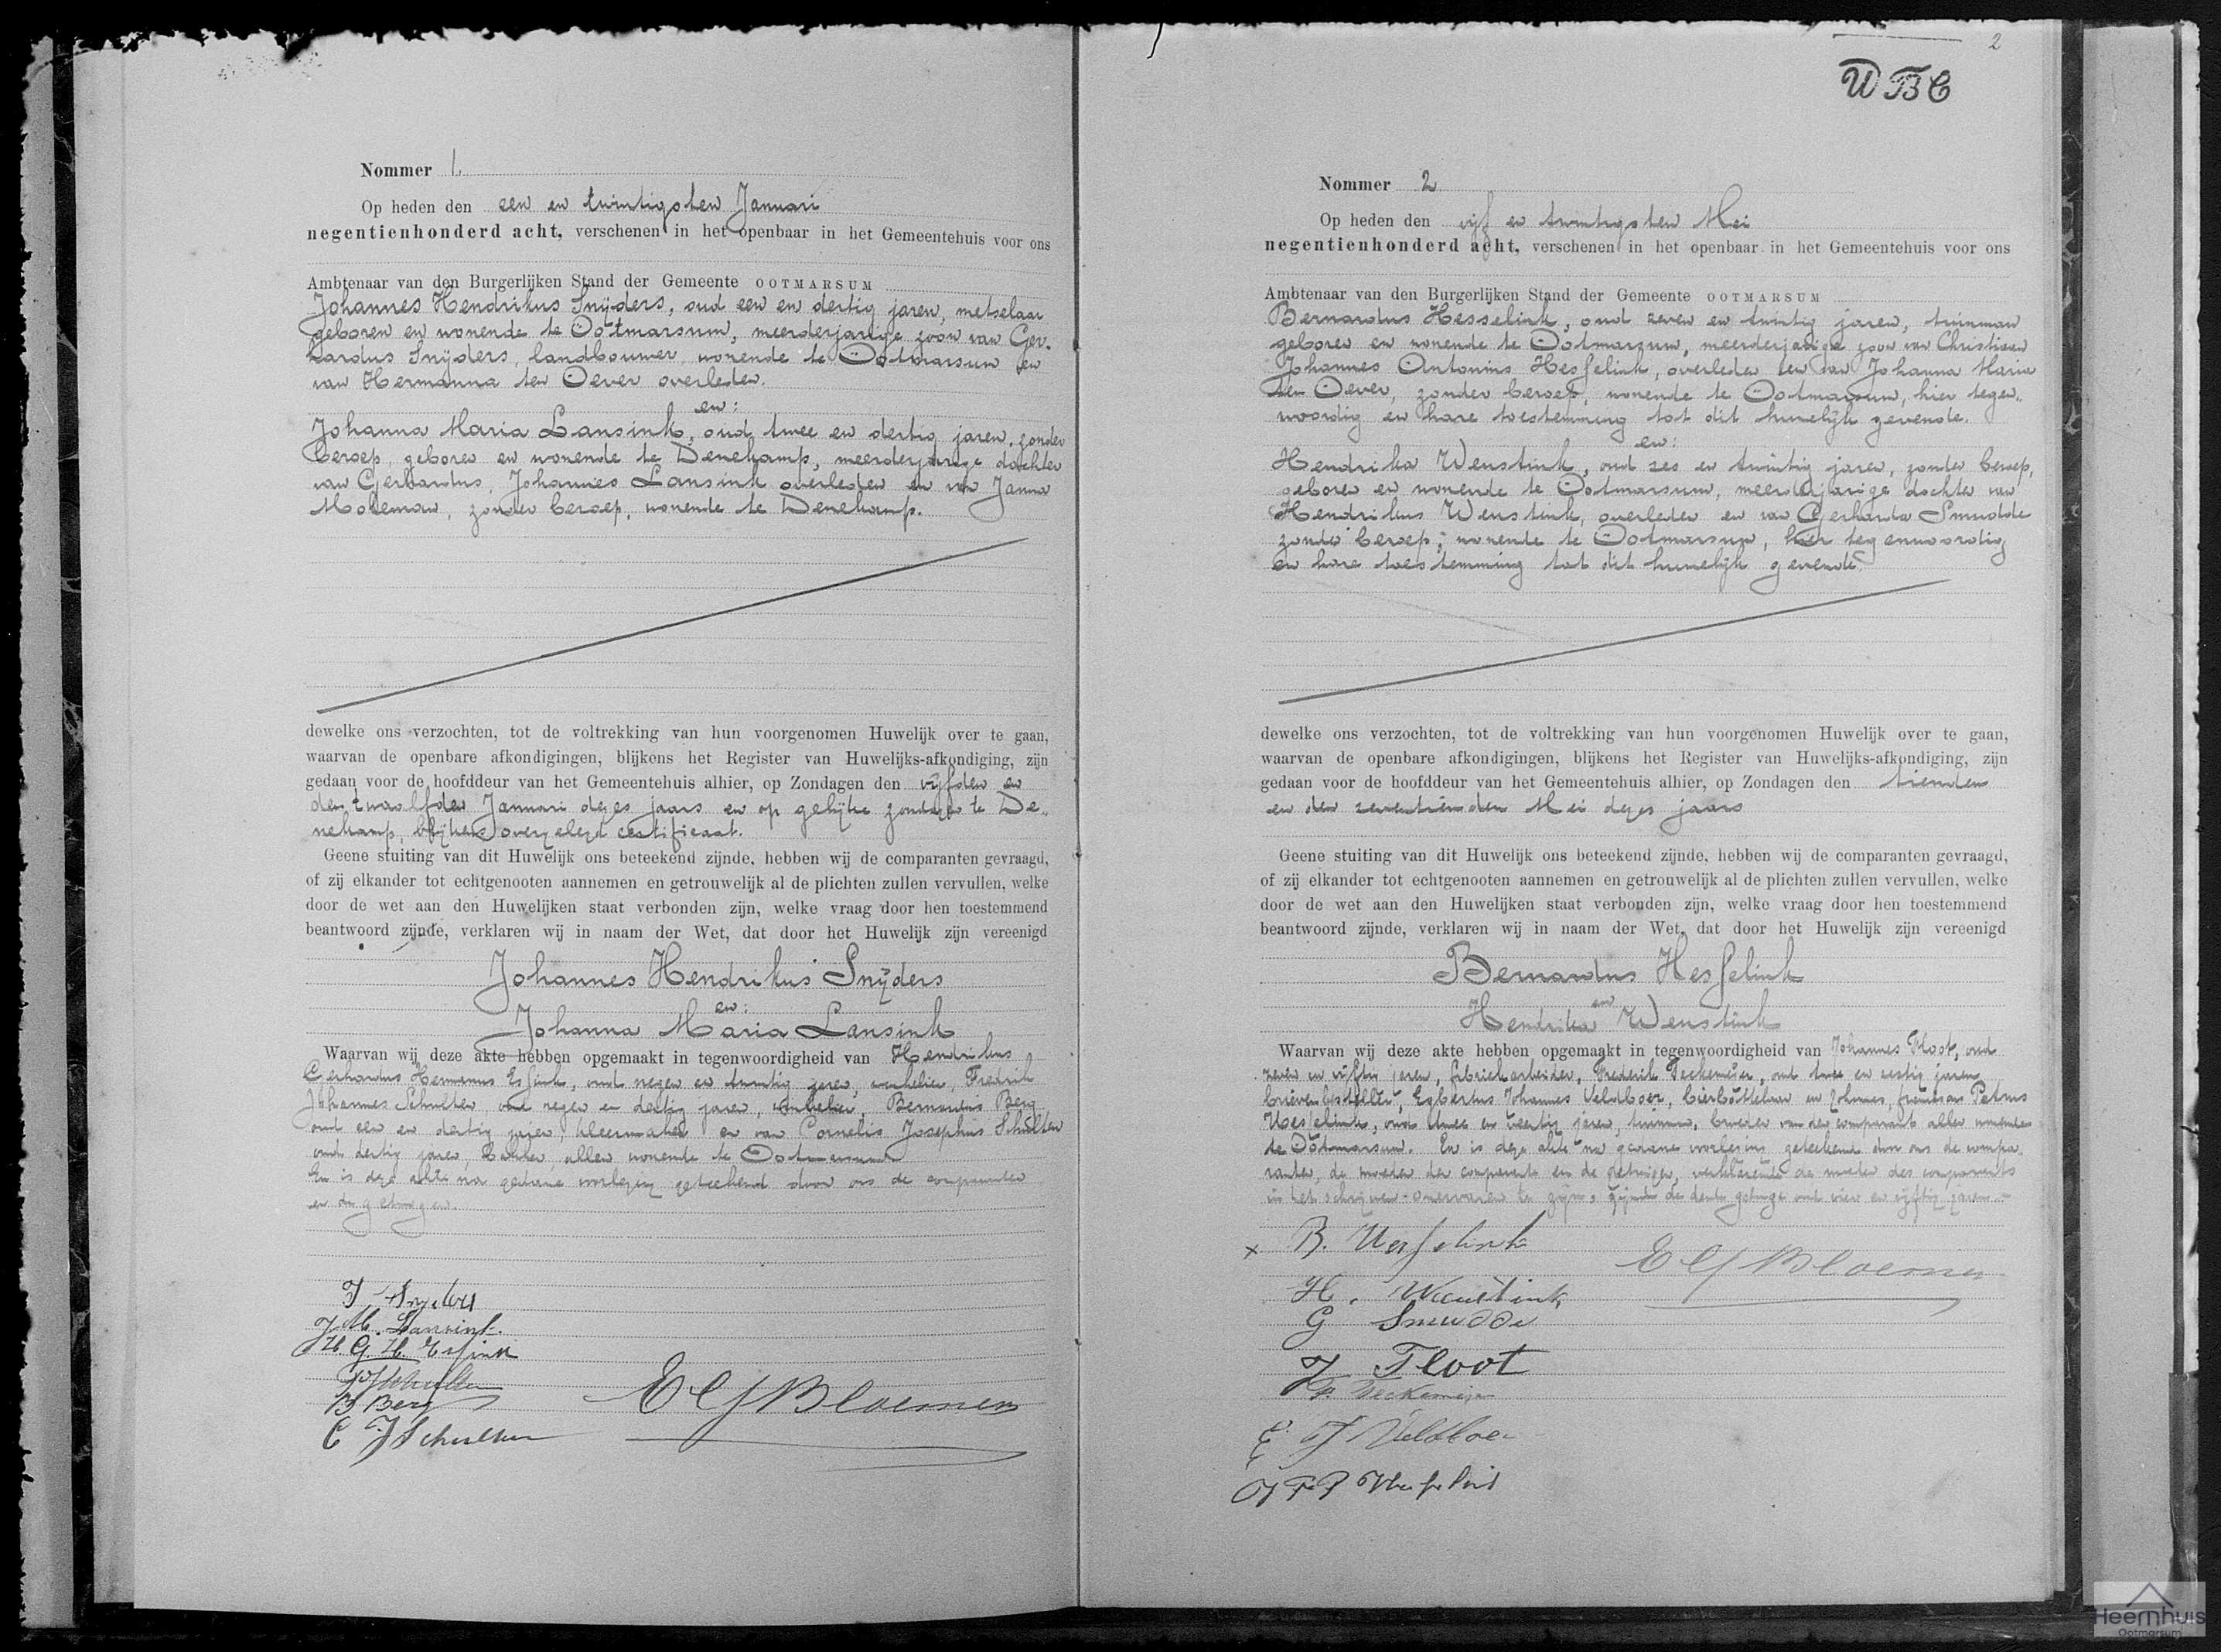 Nommer 1.
Op heden den een en twintigsten Januari
negentienhonderd acht, verschenen in het openbaar in het Gemeentehuis voor ons
Ambtenaar van den Burgerlijken Stand der Gemeente OOTMARSUM
Johannes Hendrikus Snijders, oud een en dertig jaren, metselaar
geboren en wonende te Ootmarsum, meerderjarige zoon van Ger-
hardus Snijders, landbouwer, wonende te Ootmarsum en
van Hermanna ten Oever overleden.
en:
Johanna Maria Lansink, oud twee en dertig jaren, zonder
beroep, geboren en wonende te Denekamp, meerderjarige dochter
van Gerhardus, Johannes Lansink overleden en van Janna
Moleman, zonder beroep, wonende te Denekamp.
dewelke ons verzochten, tot de voltrekking van hun voorgenomen Huwelijk over te gaan,
waarvan de openbare afkondigingen, blijkens het Register van Huwelijks-afkondiging, zijn
gedaan voor de hoofddeur van het Gemeentehuis alhier, op Zondagen den vijfden en
den twaalfden Januari dezes jaars en op gelijke zondagen te De-
nekamp, blijkens overgelegd certificaat.
Geene stuiting van dit Huwelijk ons beteekend zijnde, hebben wij de comparanten gevraagd,
of zij elkander tot echtgenooten aannemen en getrouwelijk al de plichten zullen vervullen, welke
door de wet aan den Huwelijken staat verbonden zijn, welke vraag door hen toestemmend
beantwoord zijnde, verklaren wij in naam der Wet, dat door het Huwelijk zijn vereenigd
Johannes Hendrikus Snijders
en:
Johanna Maria Lansink
Waarvan wij deze akte hebben opgemaakt in tegenwoordigheid van Hendrikus
Gerhardus Hermannus Essink, oud negen en twintig jaren, Fredrik
Johannes Schulten, oud negen en dertig jaren, Bernardus Berg
oud een en dertig jaren, kleermaker en van Cornelis Josephus Schulten
oud dertig jaren, bakker, allen wonende te Ootmarsum
En is deze akte na gedane voorlezing geteekend door ons de comparanten
en de getuigen.
J Snijders
J. M. Lansink.
H. G. H. Essink
F J Schulten
B Berg
C J Schulten
E C J Bloemen
2
WBC
Nommer 2
Op heden den vijf en twintigsten Mei
negentienhonderd acht, verschenen in het openbaar in het Gemeentehuis voor ons
Ambtenaar van den Burgerlijken Stand der Gemeente OOTMARSUM
Bernardus Hesselink, oud zeven en twintig jaren, tuinman
geboren en wonende te Ootmarsum, meerderjarige zoon van Christiaan
Johannes Antonius Hesselink, overleden en van Johanna Maria
ten Oever, zonder beroep, wonende te Ootmarsum, hier tegen-
woordig en hare toestemming tot dit huwelijk gevende.
en:
Hendrika Wenstink, oud zes en twintig jaren, zonder beroep,
geboren en wonende te Ootmarsum, meerderjarige dochter van
Hendrikus Wenstink, overleden en van Gerharda Smudde
zonder beroep, wonende te Ootmarsum, hier tegenwoordig
en hare toestemming tot dit huwelijk gevende.
dewelke ons verzochten, tot de voltrekking van hun voorgenomen Huwelijk over te gaan,
waarvan de openbare afkondigingen, blijkens het Register van Huwelijks-afkondiging, zijn
gedaan voor de hoofddeur van het Gemeentehuis alhier, op Zondagen den tienden
en den zeventienden Mei dezes jaars
Geene stuiting van dit Huwelijk ons beteekend zijnde, hebben wij de comparanten gevraagd,
of zij elkander tot echtgenooten aannemen en getrouwelijk al de plichten zullen vervullen, welke
door de wet aan den Huwelijken staat verbonden zijn, welke vraag door hen toestemmend
beantwoord zijnde, verklaren wij in naam der Wet, dat door het Huwelijk zijn vereenigd
Bernardus Hesselink
en
Hendrika Wenstink
Waarvan wij deze akte hebben opgemaakt in tegenwoordigheid van Johannes Floot, oud
zeven en vijftig jaren, fabriekarbeider, Frederik Deckemeijer, oud twee en zestig jaren
brievenbesteller, Egbertus Johannes Veldboer, bierbottelaar en Johannes, Franciscus Petrus
Hesselink, oud twee en veertig jaren, tuinman, broeder van den comparant allen wonende
te Ootmarsum. En is deze akte na gedane voorlezing geteekend door ons de compa-
ranten, de moeder der comparante en de getuigen, verklarende de moeder des comparants
in het schrijven onervaren te zijn, zijnde de derde getuige oud vier en vijftig jaren
x B. Hesselink
E C J Bloemen
H. Wenstink
G Smudde
J Floot
F. Deckemeijer
E J Veldboer
J F P Hesselink
Heernhuis
Ootmarsum